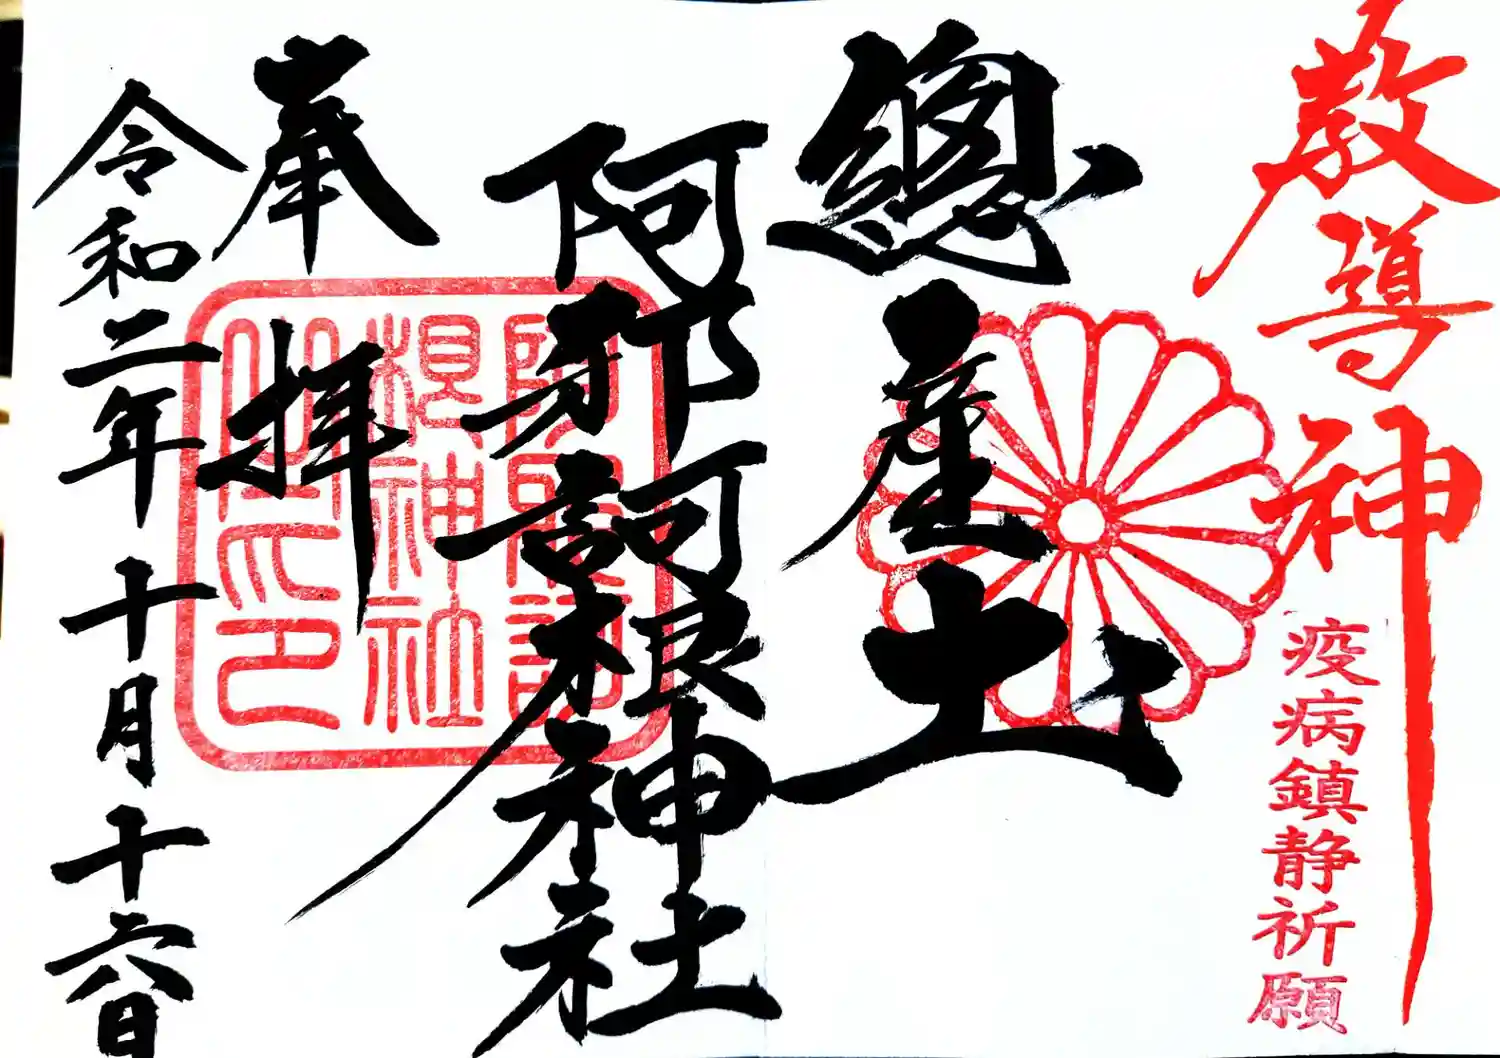 教導神
疫病鎮静祈願
總産土
阿邪訶根神社
奉拝
令和二年十月十六日
阿邪訶
根神社
之印